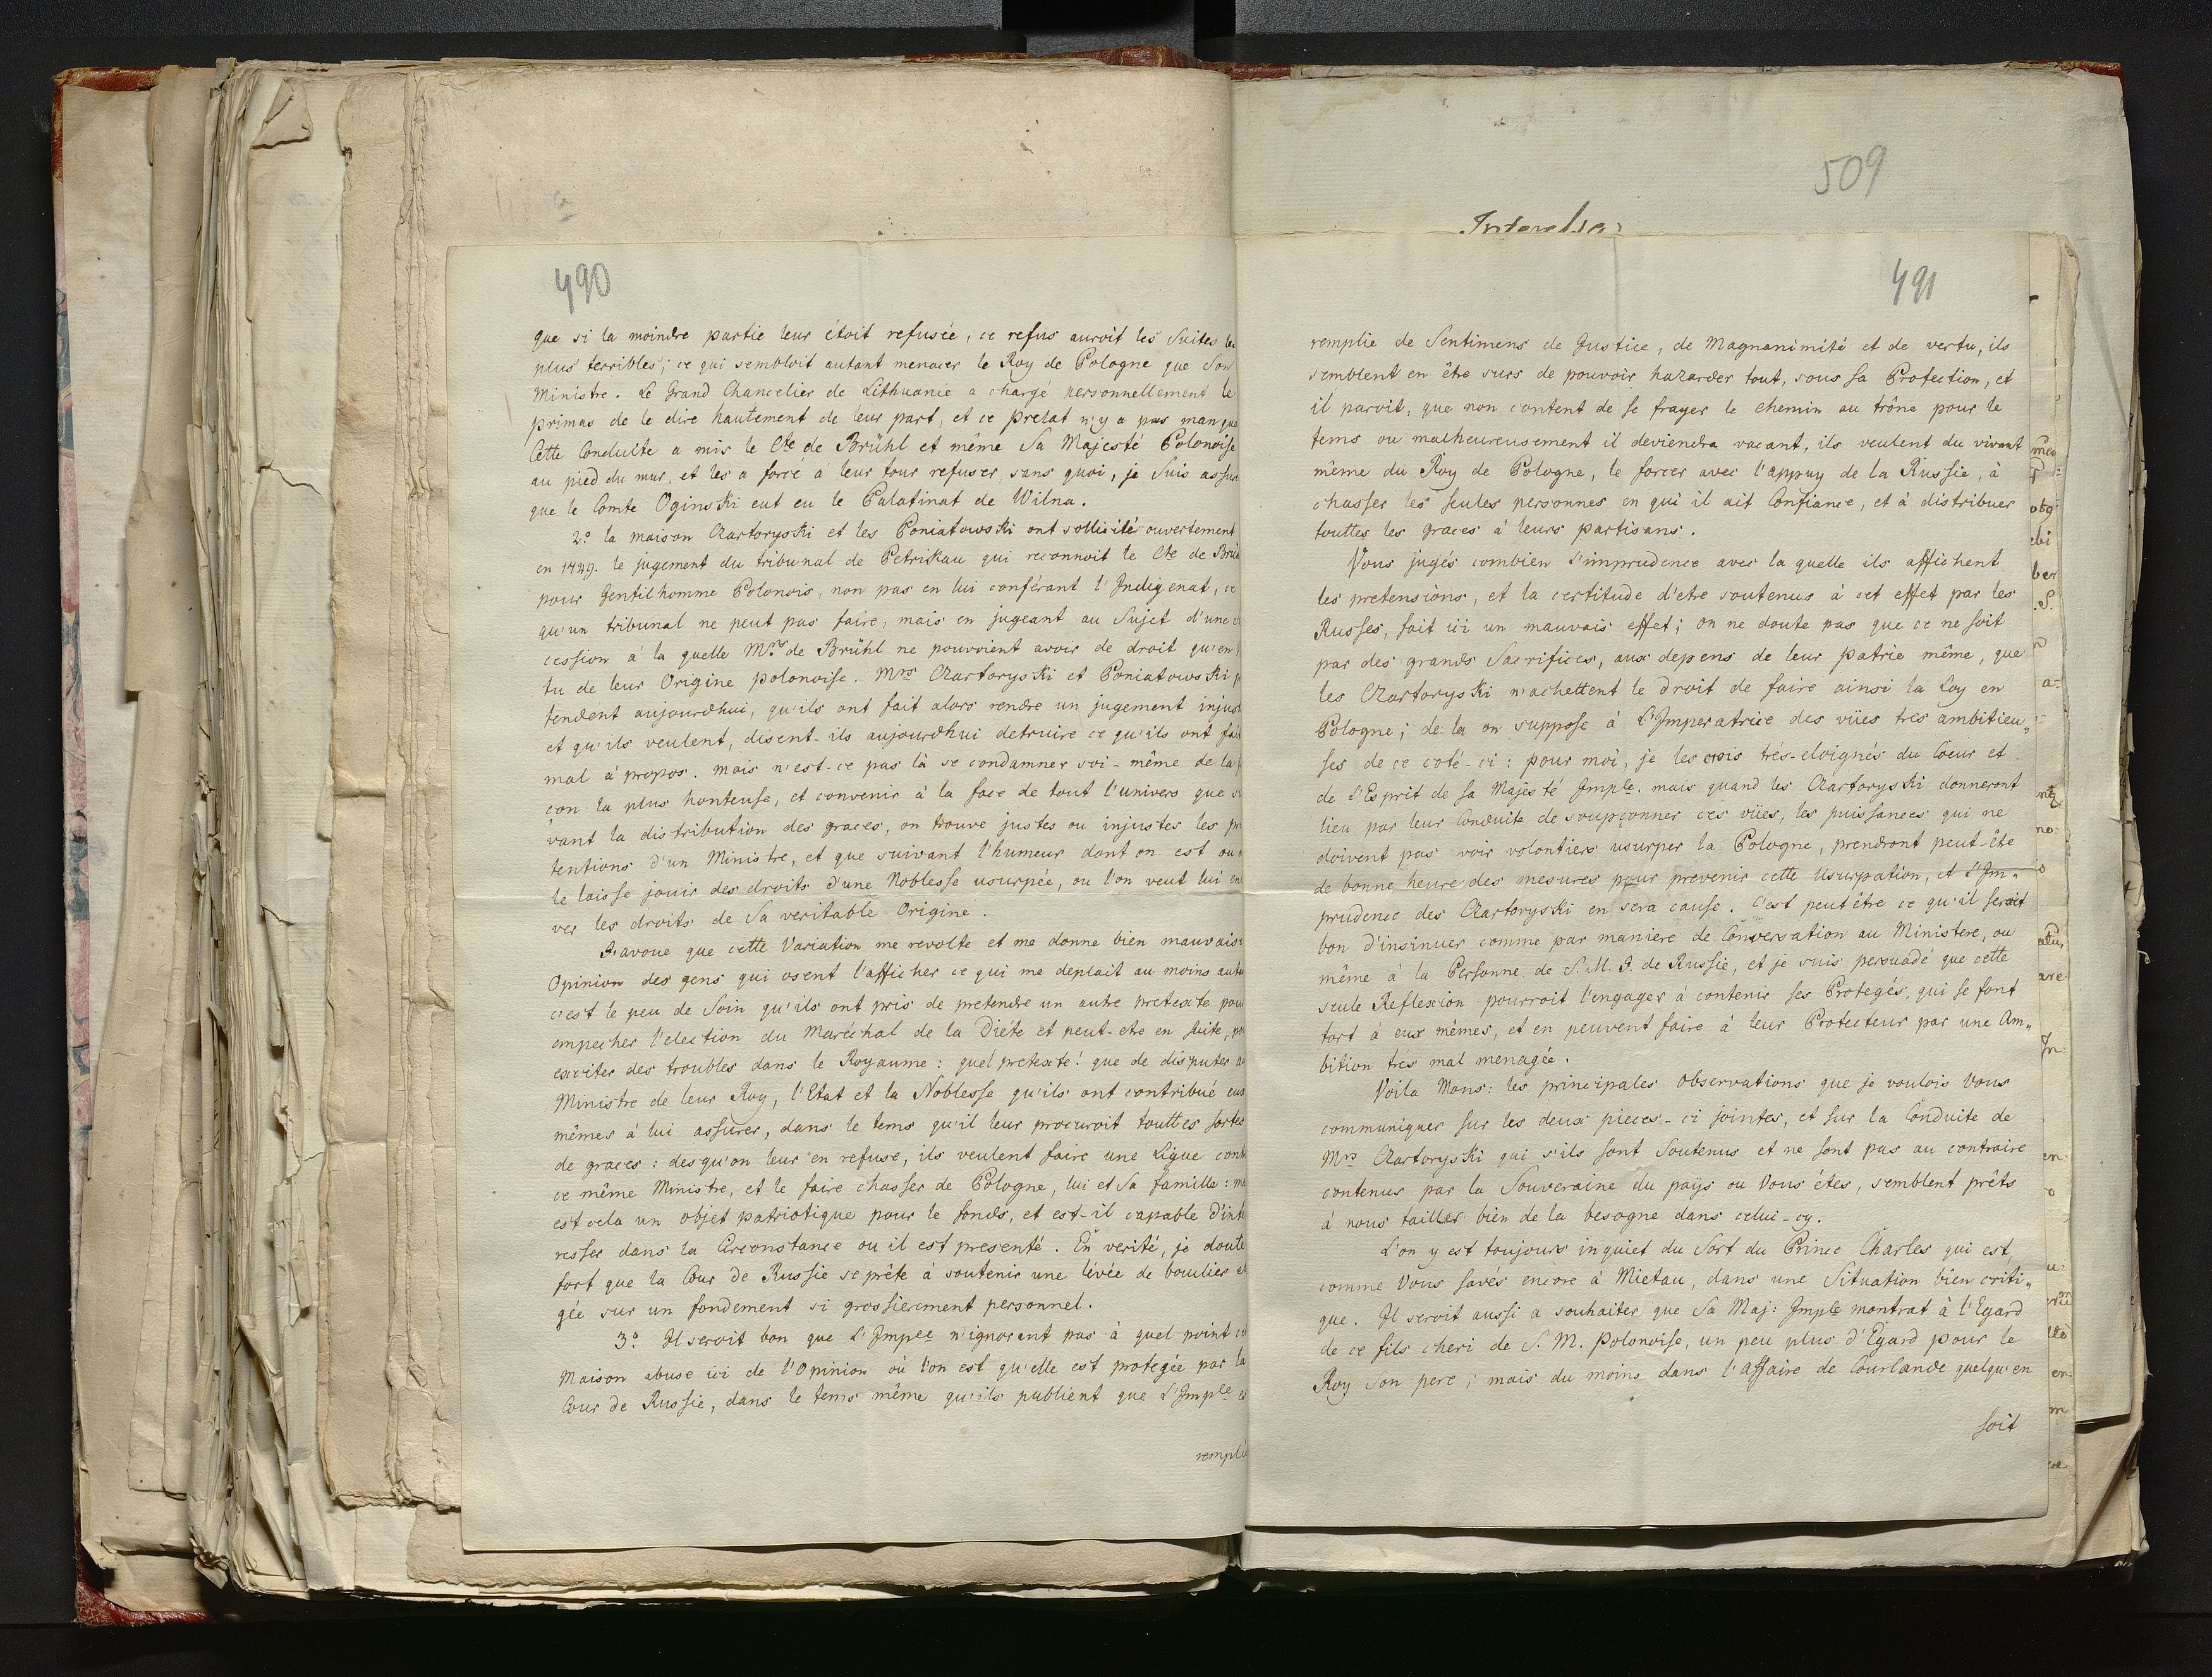 490
que si la moindre partie leur étoit refusée, ce refus auroit les Suites les
plus terribles; ce qui sembloit autant menacer le Roy de Pologne que Son
Ministre. Le Grand Chancelier de Lithuanie a chargé personnellement le
primas de le dire hautement de leur part, et ce prelat n'y a pas manqué
Cette Conduite a mis le Cte de Brühl et même Sa Majesté Polonoise
au pied du mur, et les a forcé à leur tour refuser, sans quoi, je Suis assur
que le Comte Oginski eut eu le Palatinat de Wilna.
2.° la maison Czartoryski et les Poniatowski ont sollicité ouvertement
en 1749. le jugement du tribunal de Petrikau qui reconnoit le Cte de Brü
pour Gentilhomme Polonois, non pas en lui conférant l'Indigenat, ce
qu'un tribunal ne peut pas faire, mais en jugeant au Sujet d'une
cession à la quelle Mrs de Brühl ne pouvoient avoir de droit qu'en
tu de leur Origine polonoise. Mrs Czartoryski et Poniatowski p
tendent aujourdhui, qu'ils ont fait alors rendre un jugement injus
et qu'ils veulent, disent-ils aujourdhui detruire ce qu'ils ont fai
mal à propos. mais n'est-ce pas là se condamner soi-même de la f
con la plus honteuse, et convenir à la face de tout l'univers que su
vant la distribution des graces, on trouve justes ou injustes les pr
tentions d'un Ministre, et que suivant l'humeur dont on est ou
le laisse jouir des droits d'une Noblesse usurpée, ou l'on veut lui en
ver les droits de Sa veritable Origine.
J'avoue que cette Variation me revolte et me donne bien mauvaise
Opinion des gens qui osent l'afficher ce qui me deplait au moins aut
c'est le peu de Soin qu'ils ont pris de pretendre un autre pretexte pour
empecher l'election du Maréchal de la Diéte et peut-etre en Suite, po
exciter des troubles dans le Royaume: quel pretexte! que de disputer a
Ministre de leur Roy, l'Etat et la Noblesse qu'ils ont contribué eux
mêmes à lui assurer, dans le tems qu'il leur procuroit touttes sortes
de graces: desqu'on leur en refuse, ils veulent faire une Ligue cont
ce même Ministre, et le faire chasser de Pologne, lui et Sa famille: ma
est cela un objet patriotique pour le fonds, et est-il capable d'inté
resser dans la Circonstance ou il est presenté. En verité, je doute
fort que la Cour de Russie se prête à soutenir une lévée de bouclier e
gée sur un fondement si grossierement personnel.
3.° Il seroit bon que L'Impce n'ignorant pas à quel point ce
Maison abuse ici de l'Opinion où l'on est qu'elle est protegée par la
Cour de Russie, dans le tems même qu'ils publient que L'Imple es
remplie
509
491
remplie de Sentimens de Justice, de Magnanimité et de vertu, ils
semblent en être surs de pouvoir hazarder tout, sous Sa Protection, et
il paroit, que non content de se frayer le chemin au trône pour le
tems ou malheureusement il deviendra vacant, ils veulent du vivant
même du Roy de Pologne, le forcer avec l'appuy de la Russie, à
chasser les seules personnes en qui il ait Confiance, et à distribuer
touttes les graces à leurs partisans.
Vous jugés combien l'imprudence avec la quelle ils affichent
les pretensions, et la certitude d'etre soutenus à cet effet par les
Russes, fait ici un mauvais effet; on ne doute pas que ce ne soit
par des grands Sacrifices, aux depens de leur patrie même, que
les Czartoryski n'achettent le Droit de faire ainsi la Loy en
Pologne; de la on suppose à L'Imperatrice des vües tres ambitieu„
ses de ce coté-ci: pour moi, je les crois trés-eloignés du Coeur et
de L'Esprit de Sa Majesté Imple. mais quand les Czartoryski donneront
lieu par leur Conduite de soupçonner ces vües, les puissances qui ne
doivent pas voir volontiers usurper la Pologne, prendront peut-être
de bonne heure des mesures pour prevenir cette Usurpation, et L'Im„
prudence des Czartoryski en sera cause. C'est peutêtre ce qu'il seroit
bon d'insinuer comme par maniere de Conversation au Ministere, ou
même à la Personne de S. M. I. de Russie, et je suis persuadé que cette
seule Reflexion pourroit l'engager à contenir ses Protegés, qui se font
tort à eux mêmes, et en peuvent faire à leur Protecteur par une Am„
bition trés mal menagée.
Voila Mons: les principales Observations que je voulois Vous
communiquer sur les deux pieces-ci jointes, et sur la Conduite de
Mrs Czartoryski qui s'ils sont Soutenus et ne sont pas au contraire
contenus par la Souveraine du païs ou Vous étes, semblent prêts
à nous tailler bien de la besogne dans celui-cy.
L'on y est toujours inquiet du Sort du Prince Charles qui est,
comme Vous savés encore à Mietau, dans une Situation bien criti„
que. Il seroit aussi a souhaiter que Sa Maj: Imple montrat à l'Egard
de ce fils cheri de S. M. Polonoise, un peu plus d'Egard pour le
Roy Son pere; mais du moins dans l'affaire de Courlande quelqu'en
soit